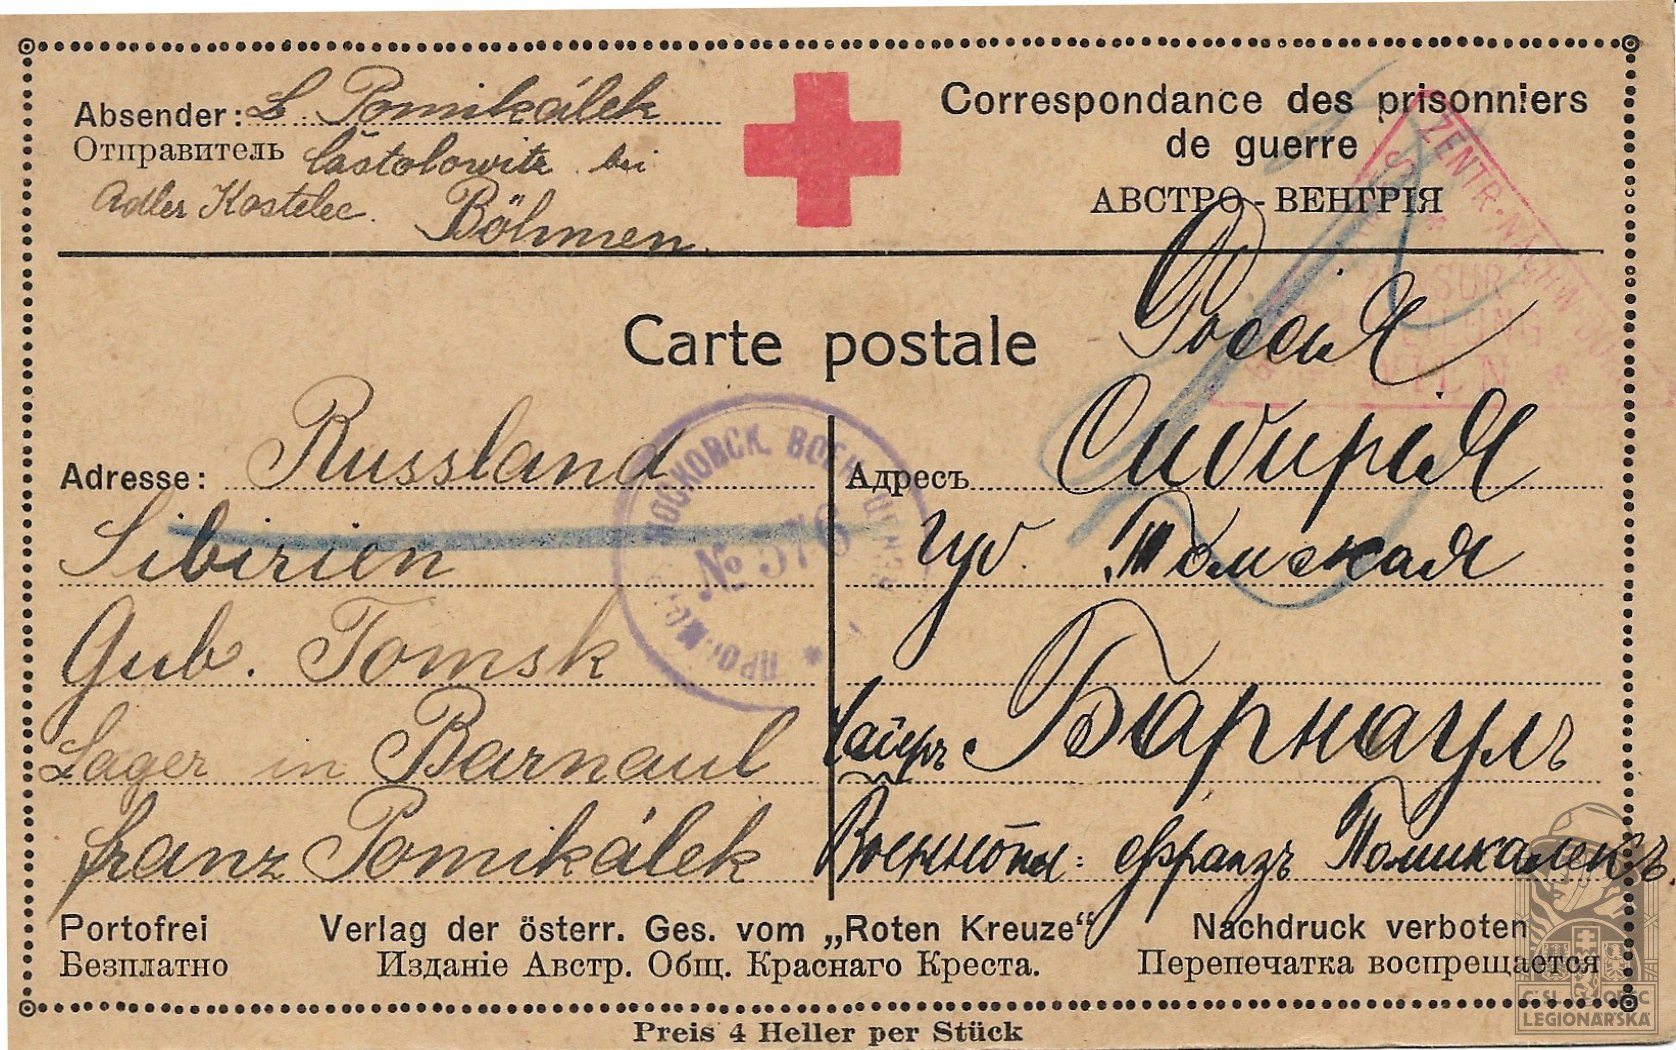 Absender: L Pomikálek
Отправитель Častolowitz bei
Adler Kostelec.
Böhmen.
Correspondance des prisonniers
de guerre
АВСТРО-ВЕНГРІЯ
ZENTR.-NACHW
WIEN
Carte postale
Россія
Adresse: Russland
Адресъ Сибирія
МОСКОВСК. ВОЕН
№ 576
Sibirien
губ. Томская
Gub. Tomsk
Lager in Barnaul
Барнаулъ
Franz Pomikálek
Францъ Помикалекъ.
Portofrei
Безплатно
Verlag der österr. Ges. vom „Roten Kreuze“
Изданіе Австр. Общ. Краснаго Креста.
Nachdruck verboten
Перепечатка воспрещается
Preis 4 Heller per Stück
ČSL OBEC
LEGIONÁŘSKÁ